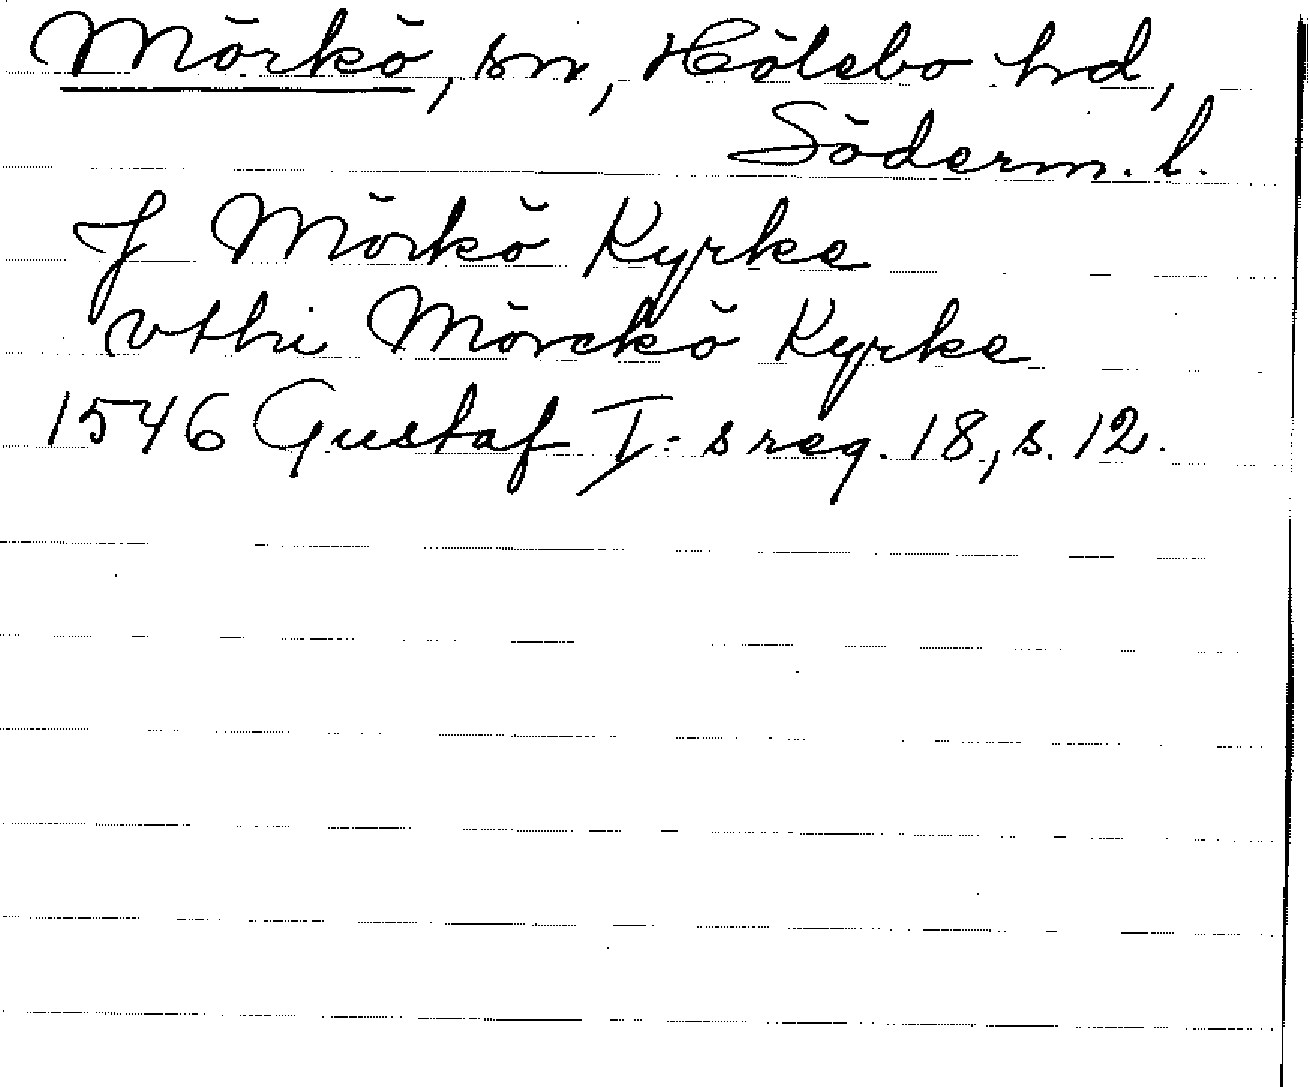 Mörkö, sn, Hölebo hd,
Söderm. l.
J Mörkö Kyrke
vthi Mörckö Kyrke
1546 Gustaf I:s reg. 18, s. 12.